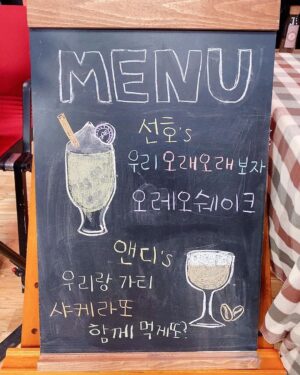 MENU
선호's
우리 오래오래 보자
오레오쉐이크
앤디's
우리랑 가티
샤케라또
함께 먹게또?